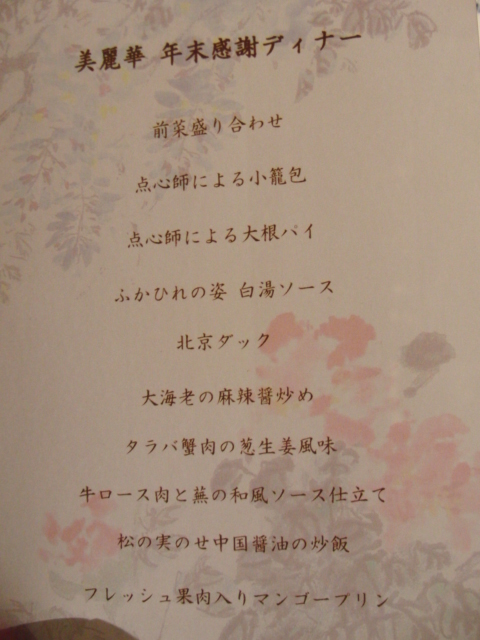 美麗華 年末感謝ディナー
前菜盛り合わせ
点心師による小籠包
点心師による大根パイ
ふかひれの姿 白湯ソース
北京ダック
大海老の麻辣醤炒め
タラバ蟹肉の葱生姜風味
牛ロース肉と蕪の和風ソース仕立て
松の実のせ中国醤油の炒飯
フレッシュ果肉入りマンゴープリン